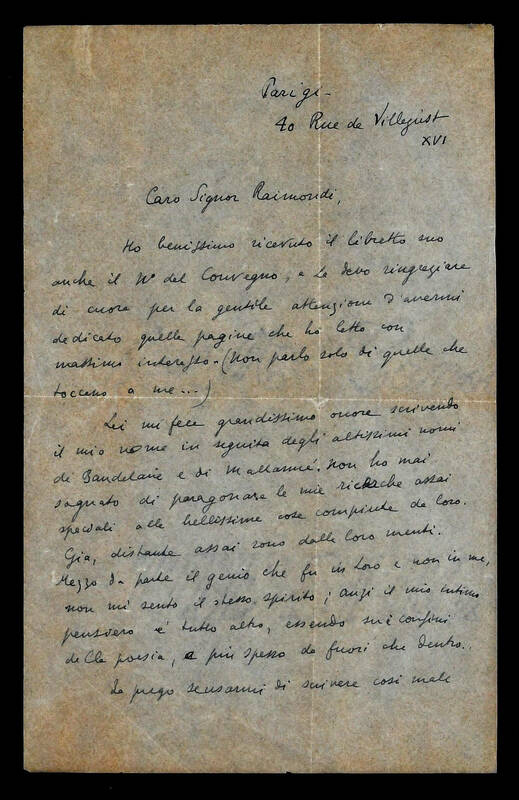 Parigi -
40 Rue de Villejust
XVI
Caro Signor Raimondi,
Ho benissimo ricevuto il libretto suo
anche il N° del Convegno, e La devo ringraziare
di cuore per la gentile attenzione d'avermi
dedicato quelle pagine che ho letto con
massimo interesso. (Non parlo solo di quelle che
toccano a me ...)
Lei mi fece grandissimo onore scrivendo
il mio nome in seguita degli altissimi nomi
di Baudelaire e di Mallarmé. Non ho mai
sognato di paragonare le mie ricerche assai
speciali alle bellissime cose compiute da loro.
Già, distante assai sono dalle loro menti.
Mezzo da parte il genio che fu in loro e non in me,
non mi sento il stesso spirito; anzi il mio intimo
pensiero è tutto altro, essendo sui confini
della poesia, e più spesso da fuori che dentro..
La prego scusarmi di scrivere così male